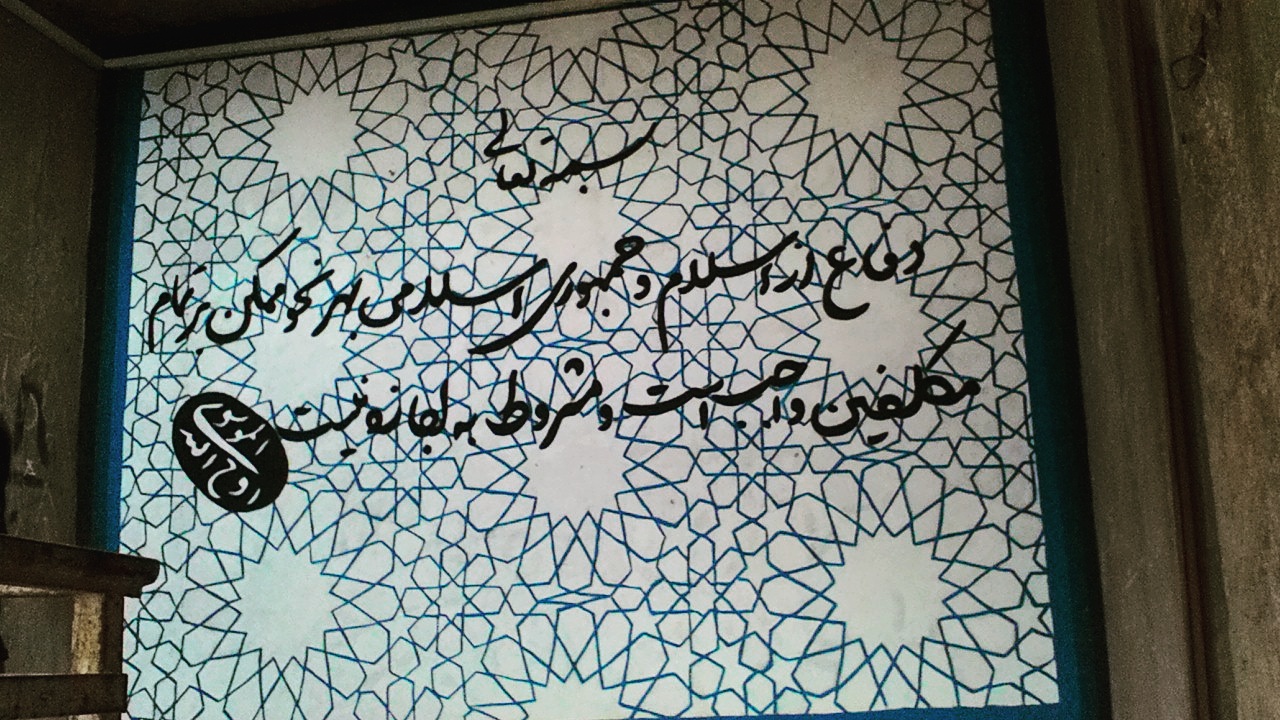 بسمه تعالی
دفاع از اسلام و جمهوری اسلامی بهر نحو ممکن بر تمام
مکلفین واجب است و مشروط به اجازه نیست
روح الله الموسوی